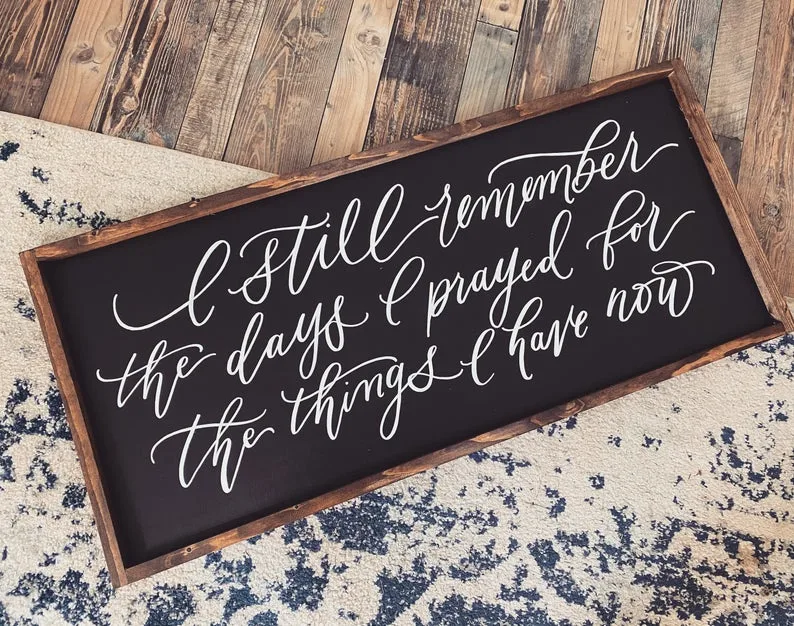 I still remember
the days I prayed for
the things I have now